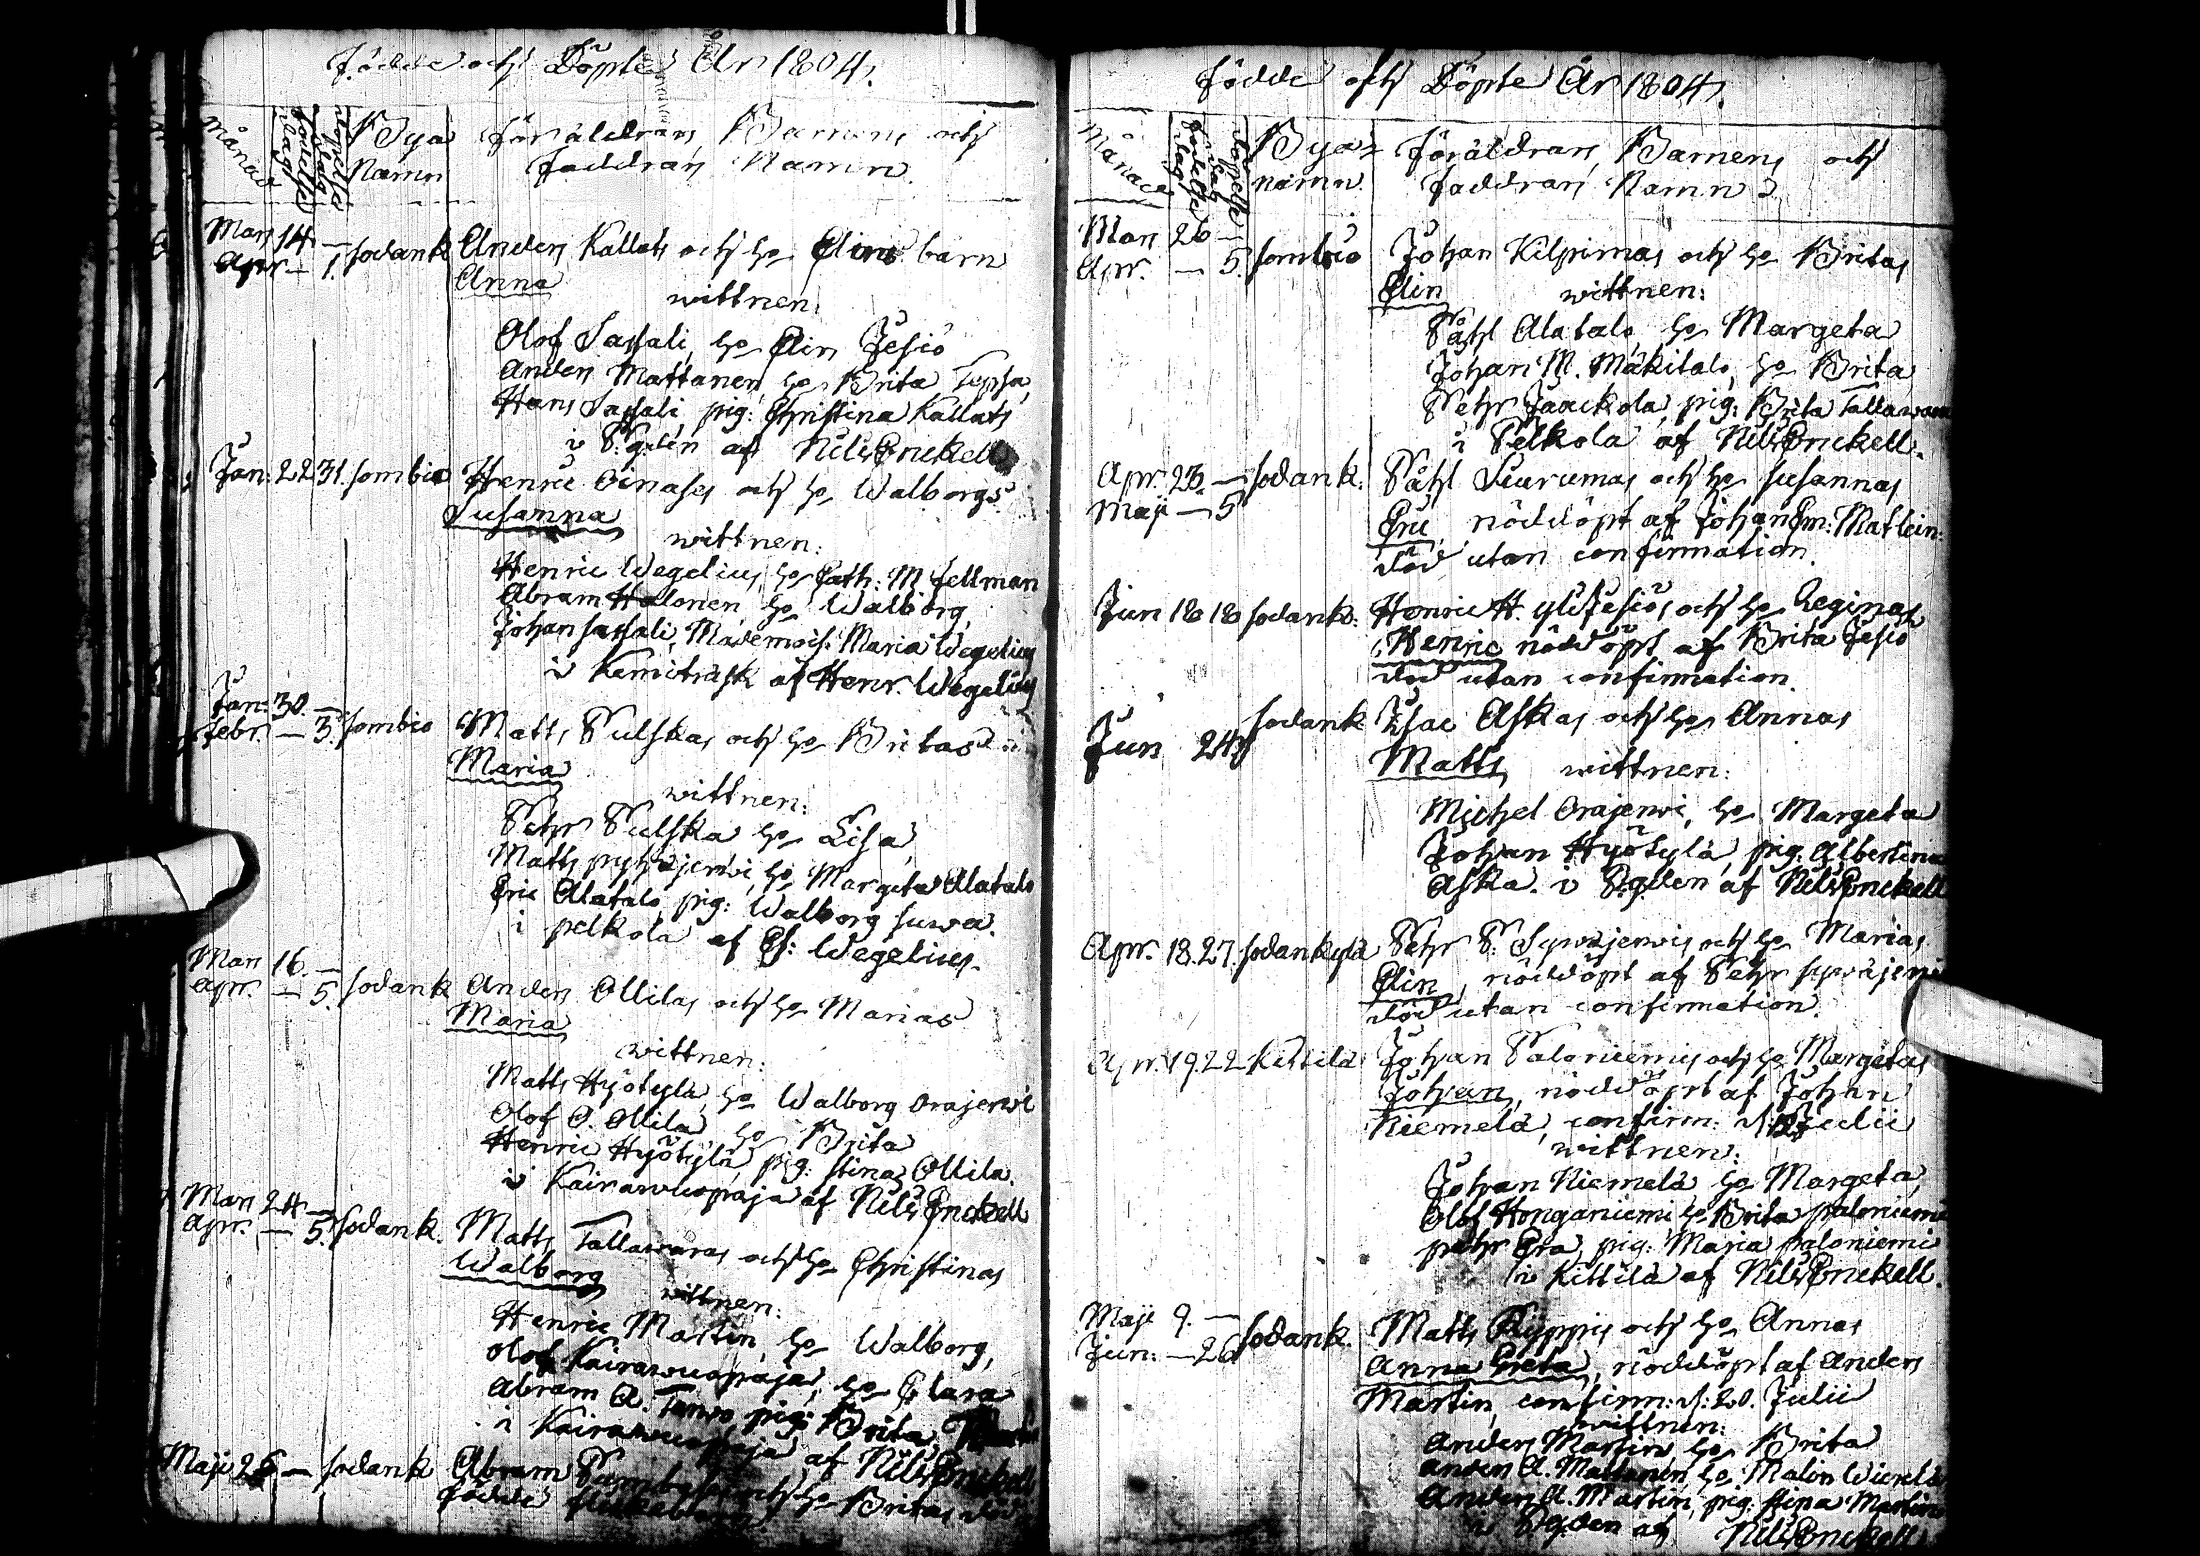 Födde och Döpte År 1804.
Månad
födelse dag
döpelse dag
Bya Namn
Föräldrars, Barnens och
Faddrars Namn.
Mars 14. —
Apr. — 1. Sodank. Anders Kallats och h:o Elins barn
Anna
wittnen:
Olof Sassali, h:o Elin Jesiö
Anders Mattanen, h:o Brita Tepsa,
Hans Sassali, pig: Christina Kallats
i P:gden af Nils Enckell
Jan: 22 31. Sombio Henric Oinases och h:o Walborgs
Susanna
wittnen:
Henric Wegelius, h:o Cath: M Fellman
Abram Halonen, h:o Walborg,
Johan Sassali, Mademois: Maria Wegelius
i Kemiträsk af Henr. Wegelius
Jan: 30. —
Febr. — 3. Sombio Matts Pulskas och h:o Britas
Maria
wittnen:
Pehr Pulska h:o Lisa,
Matts pyhäjerwi, h:o Margeta Alatalo
Eric Alatalo, pig: Walborg Suwa.
i pelkola af Es: Wegelius.
Mars 16. —
Apr. — 5. Sodank Anders Ollilas och h:o Marias
Maria
wittnen:
Matts Hyötylä, h:o Walborg Orajerwi
Olof O. Ollila h:o Brita
Henric Hyötylä, pig: Stina Ollila.
i Kairawuopaja af Nils Enckell
Mars 24. —
Apr. — 5. Sodank. Matts Tallawaras och h:o Christinas
Walborg
wittnen:
Henric Martin, h:o Walborg,
Olof Kairawuopaja, h:o Clara
Abram A. Tanwo, pig: Brita
i Kairawuopaja af Nils Enckell
Maji 26 — Sodank Abram och h:o Britas död
födde
Födde och Döpte År 1804.
Månad
födelse dag
döpelse dag
Bya namn.
Föräldrars, Barnens och
Faddrars Namn
Mars 26 —
Apr. — 5. Sombio Johan Kilpimas och h:o Britas
Elin wittnen:
Påhl Alatalo, h:o Margeta
Johan M. Mäkitalo, h:o Brita
Pehr Jaackola, pig: Brita Tallawara
i Pelkola af Nils Enckell.
Apr. 23. — Sodank. Påhl Siurumas och h:o Susannas
Maji — 5
Eric, nöddöpt af Johan Em: Matlein:
död utan confirmation.
Jun 18 18 Sodank. Henric H. yliJesiös och h:o Reginas
Henric nöddöpt af Brita Jesiö
död utan confirmation.
Jun 24 Sodank Isac Askas och h:o Annas
Matts wittnen:
Michel Orajerwi, h:o Margeta
Johan Hyötylä, pig: Albertina
Aska. i P:gden af Nils Enckell
Apr. 18. 27. Sodankylä Pehr P: Sywäjerwis och h:o Marias
Elin, nöddöpt af Pehr Sywäjerwi
död utan confirmation.
Apr. 19. 22 Kittilä Johan Paloniemis och h:o Margetas
Johan, nöddöpt af Johan
Niemelä, confirm: d: Julii
wittnen:
Johan Niemelä h:o Margeta,
Olof Honganiemi h:o Brita paloniemi
pehr Era, pig: Maria paloniemi
i Kittilä af Nils Enckell.
Maji 9. —
Jun: — 26 Sodank. Matts Kyppis och h:o Annas
Anna Greta, nöddöpt af Anders
Martin, confirm: d: 20. Julii
wittnen:
Anders Martin h:o Brita
Anders A. Mattanen, h:o Malin Wierelä
Anders A. Martin, pig: Stina Martin
i P:gden af Nils Enckell